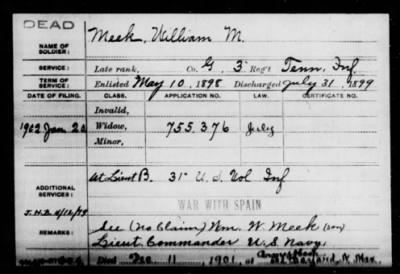 DEAD
NAME OF SOLDIER: Meek, William M.
SERVICE: Late rank, Co. G 3 Reg't Tenn. Inf
TERM OF SERVICE: Enlisted May 10, 1898 Discharged July 31, 1899
DATE OF FILING. CLASS. APPLICATION NO. LAW. CERTIFICATE NO.
Invalid,
1902 Jan 20 Widow, 755.376 July
Minor,
ADDITIONAL SERVICES: 1st Lieut B. 31" U.S. Vol Inf
WAR WITH SPAIN
REMARKS: See (No Claim) Wm. W. Meek (son)
Lieut. Commander U.S. Navy.
Died Dec. 11, 1901, at Ft. Bayard, N. Mex.